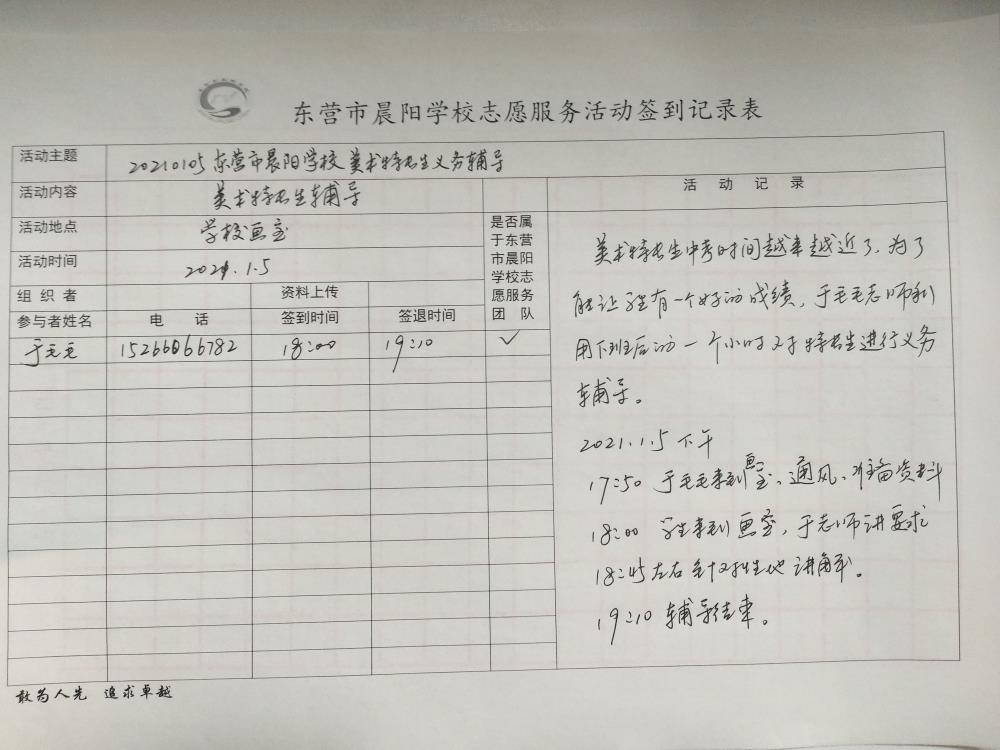 东营市晨阳学校志愿服务活动签到记录表
活动主题 20210105东营市晨阳学校美术特长生义务辅导
活动内容 美术特长生辅导
活动地点 学校画室
活动时间 2021.1.5
组织者 资料上传
参与者姓名 电话 签到时间 签退时间
于毛毛 15266066782 18:00 19:10 ✓
是否属
于东营
市晨阳
学校志
愿服务
团队
活动记录
美术特长生中考时间越来越近了,为了
能让学生有一个好的成绩,于毛毛老师利
用下班后的一个小时对特长生进行义务
辅导。
2021.1.5下午
17:50 于毛毛来到画室、通风、准备资料
18:00 学生来到画室,于老师讲要求
18:45左右针对性地讲解。
19:10 辅导结束。
敢为人先 追求卓越